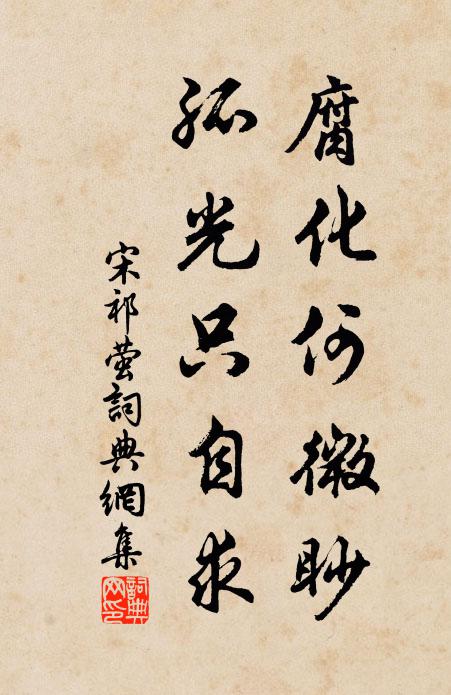 腐化何微眇
孤光只自求
宋祁萤詞典網集
詞典网印